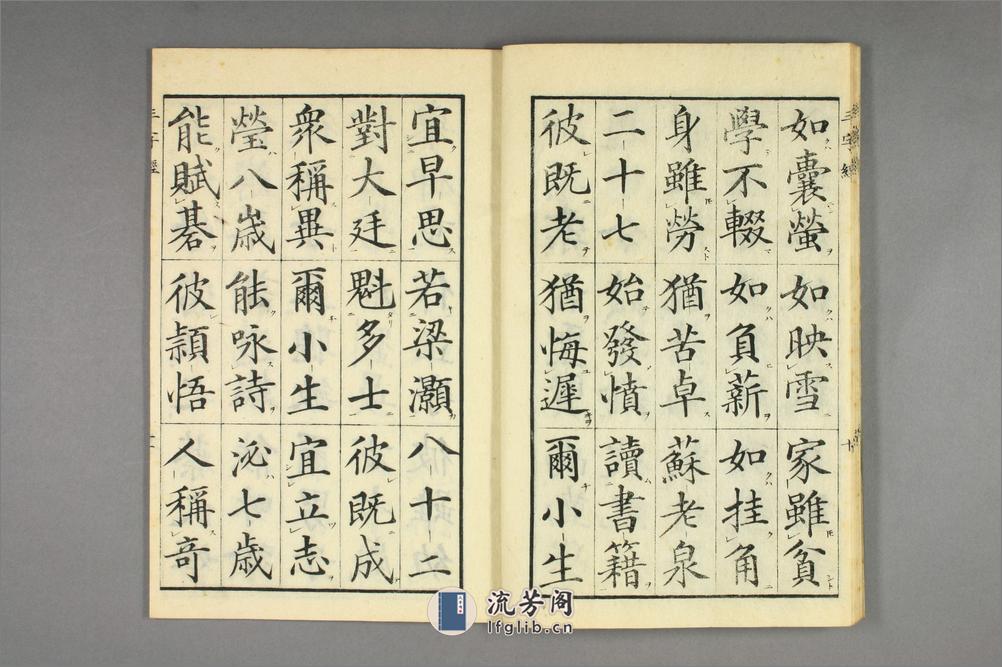 如囊螢 如映雪 家雖貧
學不輟 如負薪 如挂角
身雖勞 猶苦卓 蘇老泉
二十七 始發憤 讀書籍
彼既老 猶悔遲 爾小生
宜早思 若梁灝 八十二
對大廷 魁多士 彼既成
衆稱異 爾小生 宜立志
瑩八歳 能咏詩 泌七歳
能賦碁 彼穎悟 人稱奇
三字經
流芳阁
lfglib.cn